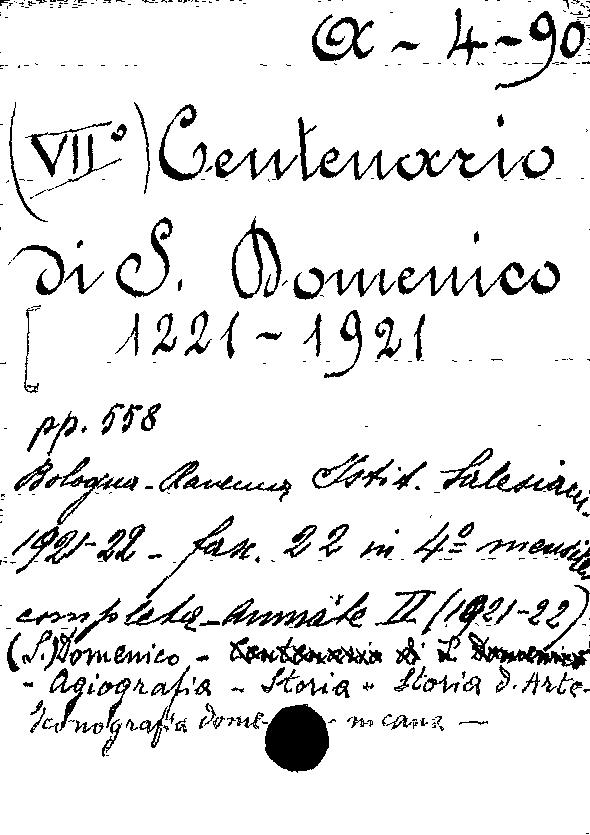 α - 4 - 90
(VII°) Centenario
di S. Domenico
1221 - 1921
pp. 558
Bologna - Ravenna Istit. Salesiani
1921-22 - fasc. 22 in 4º mensile
completa - Annate II (1921-22)
(S.) Domenico - Centenario di S. Domenico
- Agiografia - Storia - Storia d. Arte -
Iconografia dome- nicana -